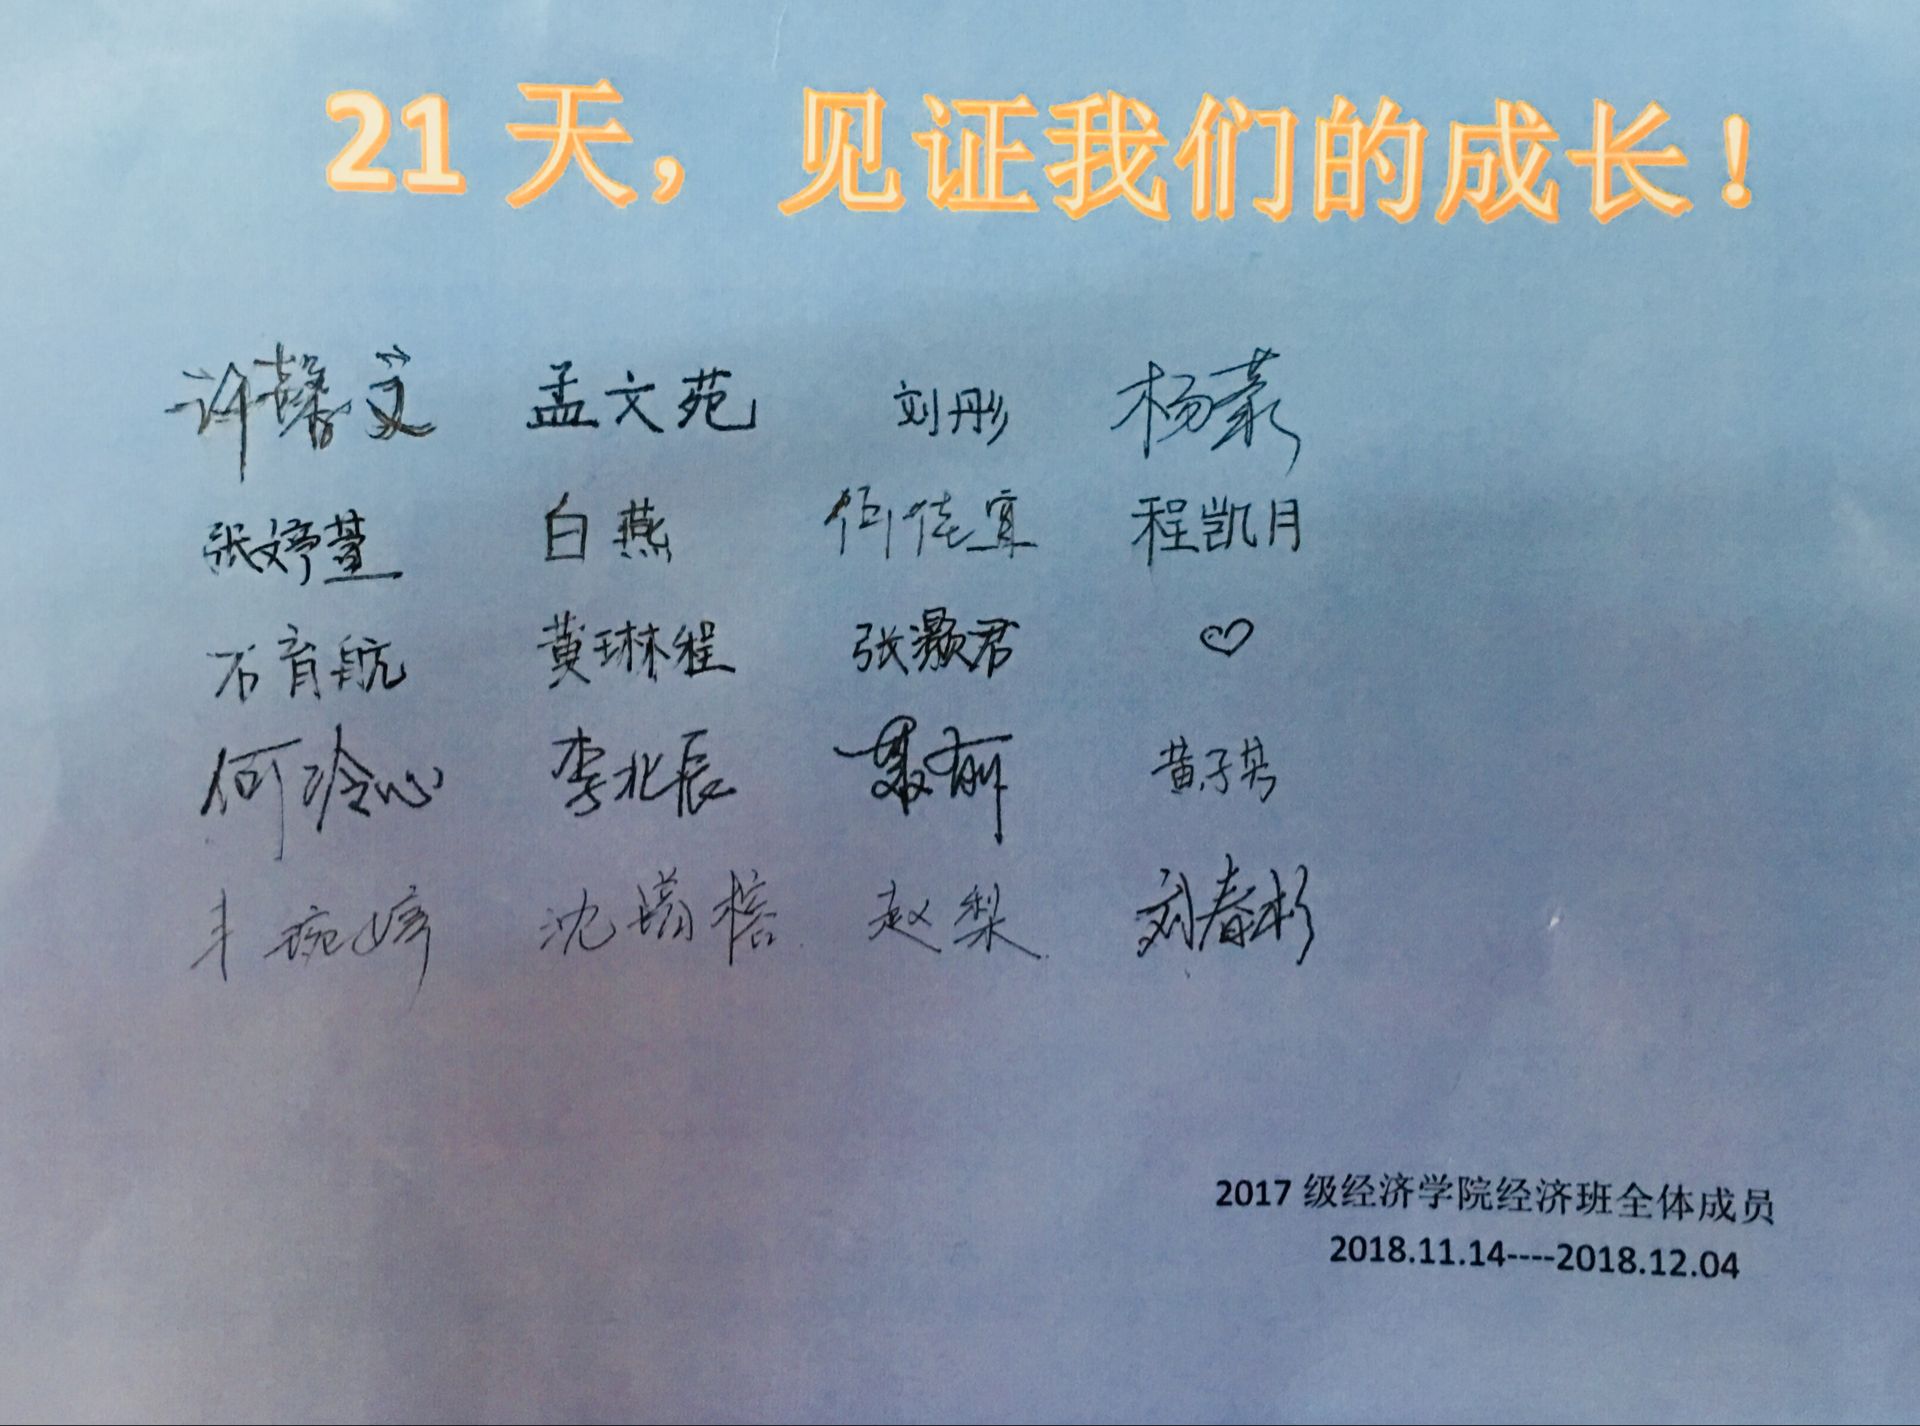 21天，见证我们的成长！
许馨文 孟文苑 刘彤 杨蒙
张婷萱 白燕 何佳宜 程凯月
石育航 黄琳程 张灏君
何冷心 李北辰 黄子英
沈瑞榕 赵梨 刘春杉
2017级经济学院经济班全体成员
2018.11.14----2018.12.04